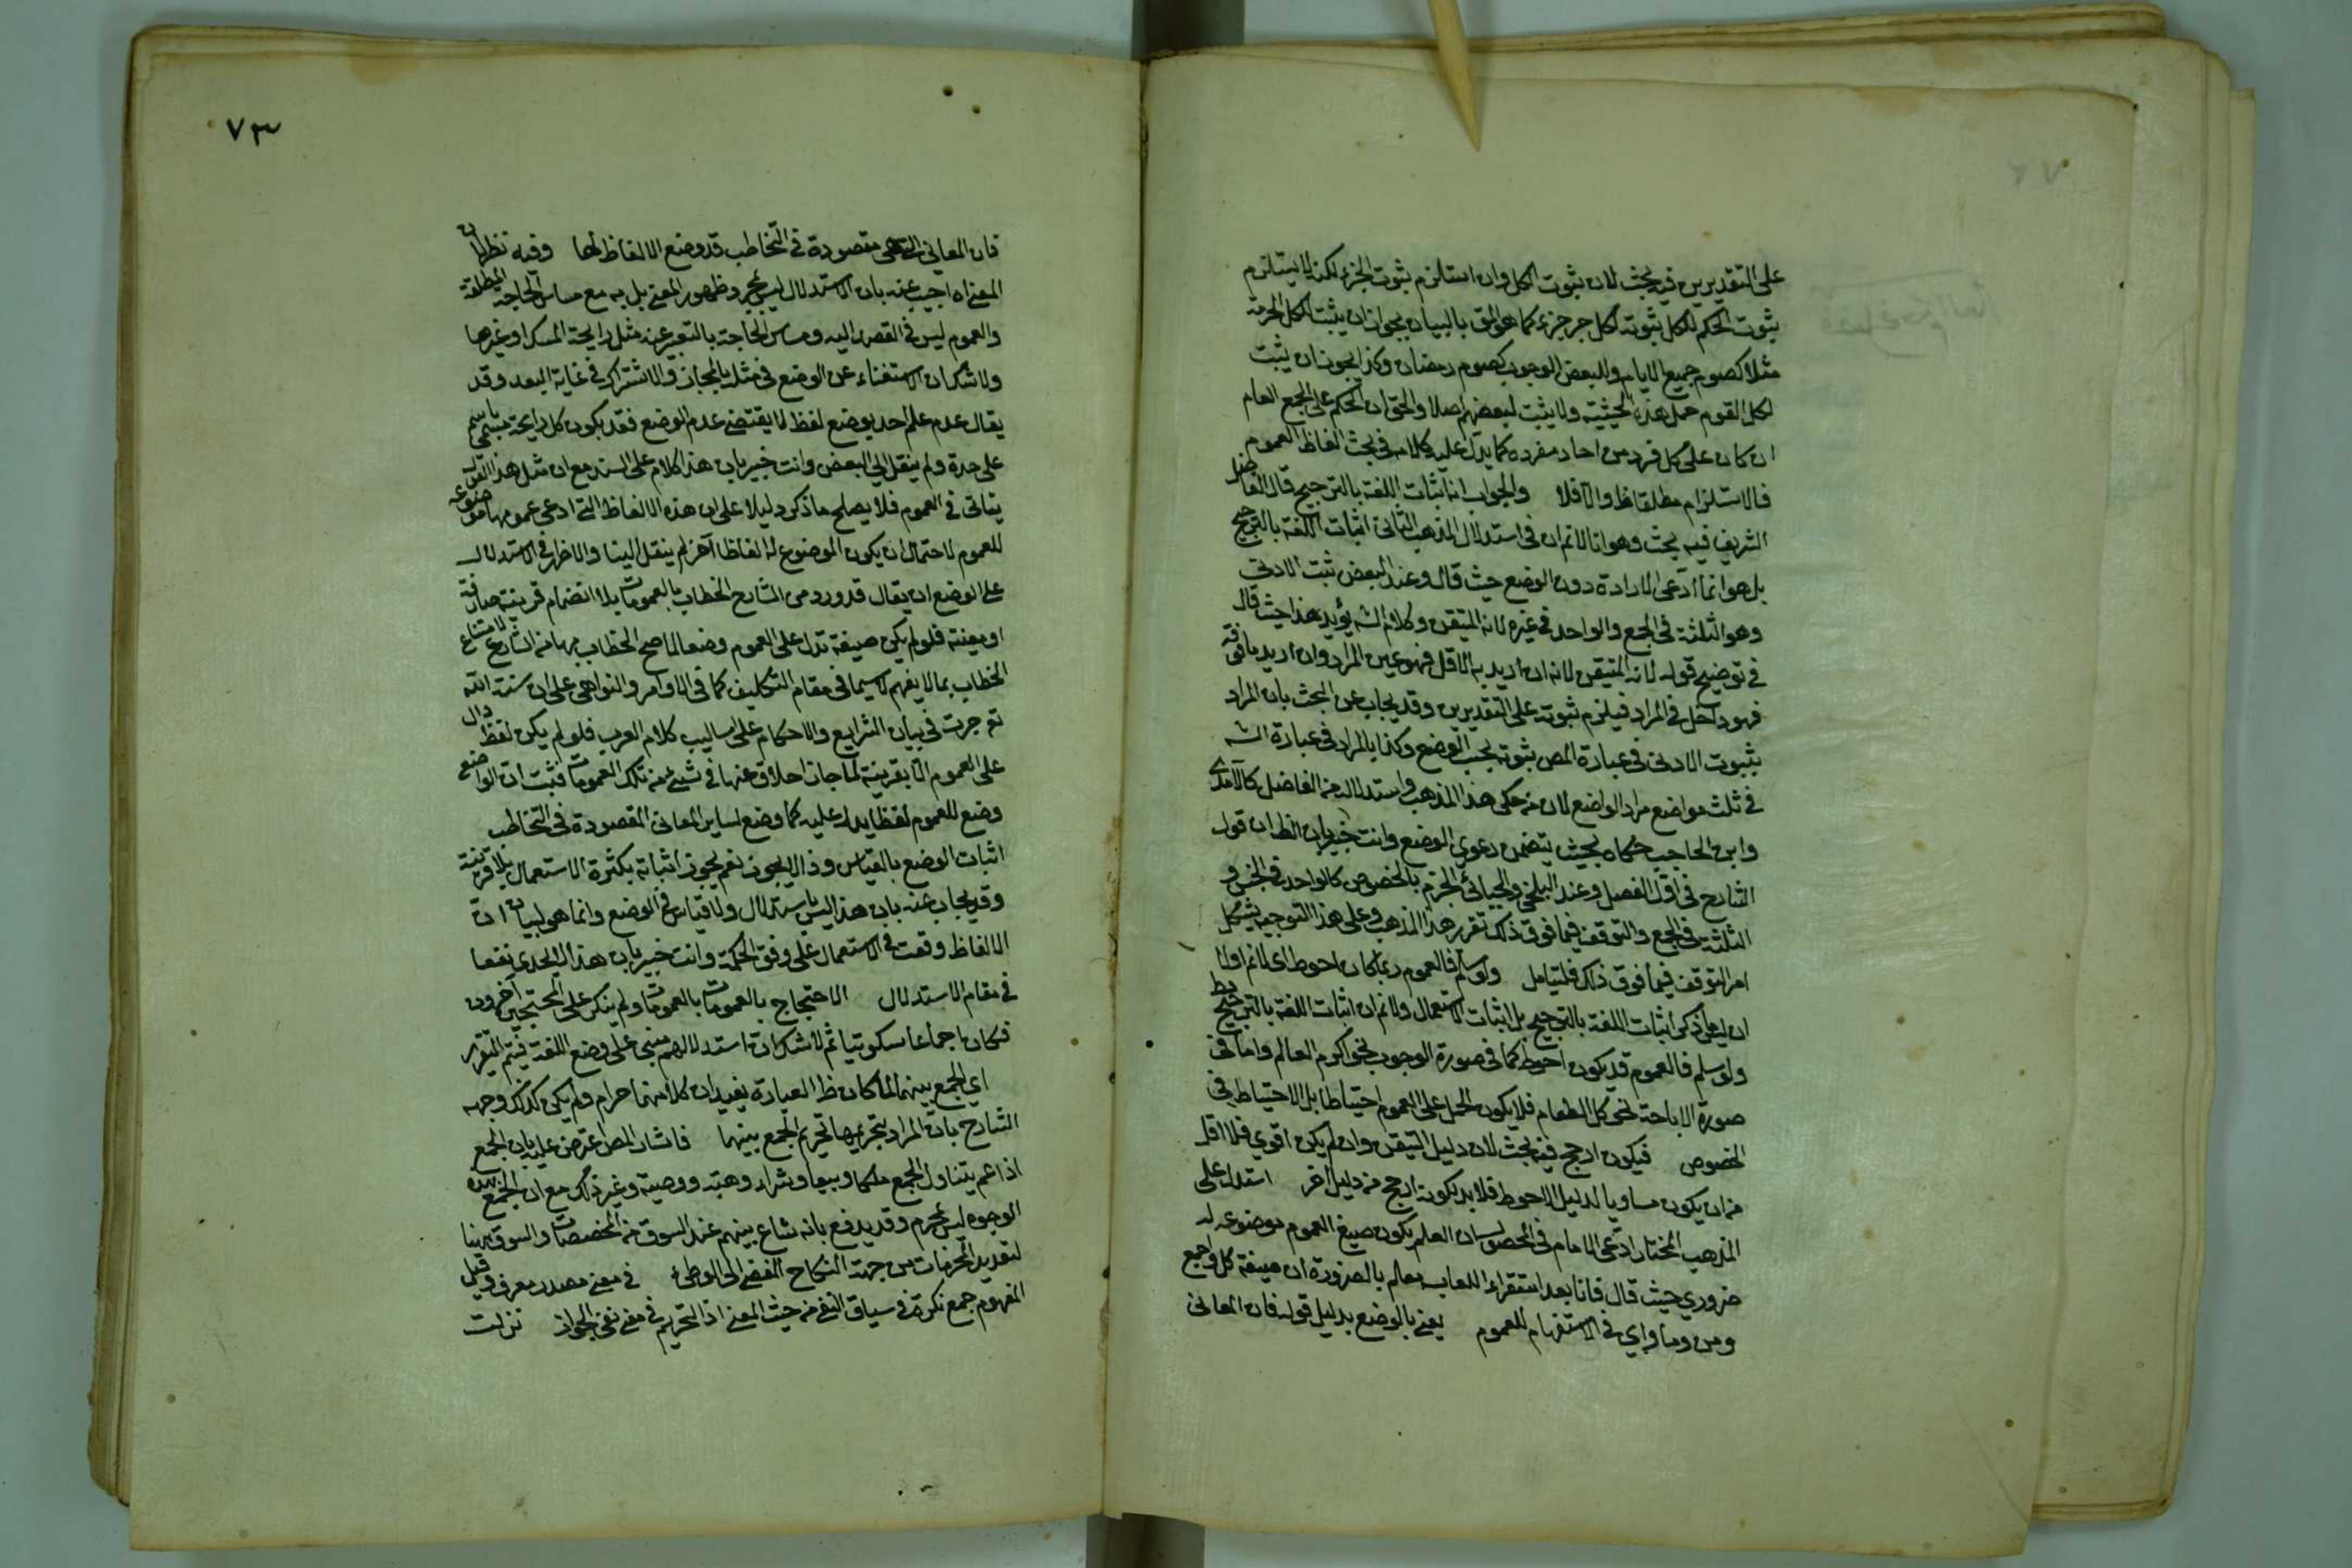 على التقديرين فيه بحث لان ثبوت الكل وان استلزم ثبوت الجزء لكنه لا يستلزم
ثبوت الحكم للكل ثبوته لكل جزء جزء كما هو اللائق بالبيان يجوز ان يثبت للكل الحرمة
مثلا كصوم جميع الايام وللبعض الوجوب كصوم رمضان وكذا يجوز ان يثبت
لكل القوم حمل هذه الخشبة ولا يثبت لبعضهم اصلا والحق ان الحكم على الجمع العام
ان كان على كل فرد من احاد مفرده كما يدل عليه كلامه في بحث الفاظ العموم
فالاستلزام مطلقا ظ والا فلا والجواب انه اثبات اللغة بالترجيح قال الفاضل
الشريف فيه بحث وهو انا لانم ان في استدلال المذهب الثاني اثبات اللغة بالترجيح
بل هو انما ادعى الارادة دون الوضع حيث قال وعند البعض ثبت الادنى
وهو الثلثة في الجمع والواحد في غيره لانه المتيقن وكلام الش يؤيد هذا حيث قال
في توضيح قوله لانه المتيقن لانه ان اريد به الاقل فهو عين المراد وان اريد ما فوقه
فهو داخل في المراد فيلزم ثبوته على التقديرين وقد يجاب عن البحث بان المراد
بثبوت الادنى في عبارة المص ثبوته بحسب الوضع وكذا بالمراد في عبارة الش
في ثلث مواضع مراد الواضع لان من حكى هذا المذهب واستدلاله من الفاضل كالآمدي
وابن الحاجب حكاه بحيث يتضمن دعوى الوضع وانت خبير بان الظ ان قول
الشارح في اول الفصل وعند البلخي والجبائي الجزم بالخصوص كالواحد في الجنس و
الثلثة في الجمع والتوقف فيما فوق ذلك تقرير هذا المذهب وعلى هذا التوجيه يشكل
امر التوقف فيما فوق ذلك فليتامل ولو سلم فالعموم ربما كان احوط اي لانم اولا
ان ما ذكر اثبات اللغة بالترجيح بل اثبات الاستعمال ولانم ان اثبات اللغة بالترجيح بط
ولو سلم فالعموم قد يكون احوط كما في صورة الوجوب نحو اكرم العالم واما في
صورة الاباحة نحو كل الطعام فلا يكون الحمل على العموم احتياطا بل الاحتياط في
الخصوص فيكون ارجح فيه بحث لان دليل التيقن وان لم يكن اقوى فلا اقل
من ان يكون مساويا لدليل الاحوط فلا بد لكونه ارجح من دليل اخر استدل على
المذهب المختار ادعى الامام في المحصول ان العلم بكون صيغ العموم موضوعة له
ضروري حيث قال فانا بعد استقراء اللغات نعلم بالضرورة ان صيغة كل وجمع
ومن وما واي في الاستفهام للعموم يعني بالوضع بدليل قوله فان المعاني
٧٣
فان المعاني التي هي مقصودة في التخاطب قد وضع الالفاظ لها وفيه نظر لان
المعنى اه اجيب عنه بان الاستدلال ليس بمجرد ظهور المعنى بل به مع مساس الحاجة المطلقة
والعموم ليس في القصد اليه ومساس الحاجة بالتعبير عنه مثل رايحة المسك او غيرها
ولا شك ان الاستغناء عن الوضع في مثله بالمجاز والاشتراك في غاية البعد وقد
يقال عدم علم احد بوضع لفظ لا يقتضي عدم الوضع فقد يكون كل رايحة مسمى باسم
على حدة ولم ينقل الى البعض وانت خبير بان هذا كلام على السند مع ان مثل هذا القول
يتاتى في العموم فلا يصلح ما ذكر دليلا على ان هذه الالفاظ التي ادعى عمومها موضوعة
للعموم لاحتمال ان يكون الموضوع له الفاظا آخر لم ينقل الينا والاظهر في الاستدلال
على الوضع ان يقال قد ورد من الشارح الخطاب بالعمومات بلا انضمام قرينة صارفة
او معينة فلو لم يكن صيغة تدل على العموم وضعا لما صح الخطاب بها من الشارع لامتناع
الخطاب بما لا يفهم لا سيما في مقام التكليف كما في الاوامر والنواهي على ان سنة الله
تع جرت في بيان الشرايع والاحكام على اساليب كلام العرب فلو لم يكن لفظ دال
على العموم الا بقرينة لما جاز اخلاؤه عنها في شيء من تلك العمومات فثبت ان الواضع
وضع للعموم لفظا يدل عليه كما وضع لساير المعاني المقصودة في التخاطب
اثبات الوضع بالقياس وذا لا يجوز نعم يجوز اثباته بكثرة الاستعمال بلا قرينة
وقد يجاب عنه بان هذا ليس باستدلال ولا قياس في الوضع وانما هو لبيان ان
الالفاظ وقعت في الاستعمال على وفق الحكمة وانت خبير بان هذا لا يجدي نفعا
في مقام الاستدلال الاحتجاج بالعمومات بالعمومات ولم ينكر على المحتجين آخرون
فكان اجماعا سكوتيا ثم لا شك ان استدلالهم مبني على وضع اللغة فيتم التقرير
اي الجمع بينهما لما كان ظ العبارة يفيد ان كلا منهما حرام ولم يكن كذلك وجهه
الشارح بان المراد بتحريمهما تحريم الجمع بينهما فاشار المص اعترض عليه بان الجمع
اذا عم يتناول الجمع ملكا وبيعا وشراء وهبة ووصية وغير ذلك مع ان الجمع بهذه
الوجوه ليس بمحرم وقد يدفع بانه شاع بينهم عند السوق من المخصصات والسوق ههنا
لتعديد المحرمات من جهة النكاح المفضي الى الوطئ في معنى مصدر معرف وقيل
المفهوم جمع نكرة في سياق النفي من حيث المعنى اذ التحريم في معنى نفي الجواز نزلت